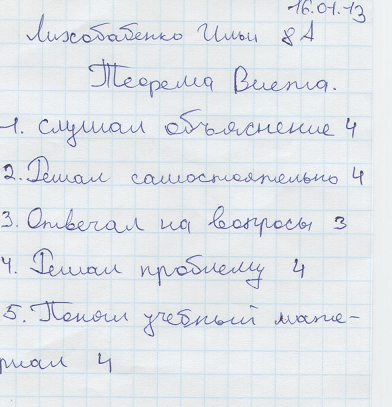 16.01.13
Лихобабенко Ильи 8А
Теорема Виета.
1. Слушал объяснение 4
2. Решал самостоятельно 4
3. Отвечал на вопросы 3
4. Решал проблему 4
5. Понял учебный мате-
риал 4